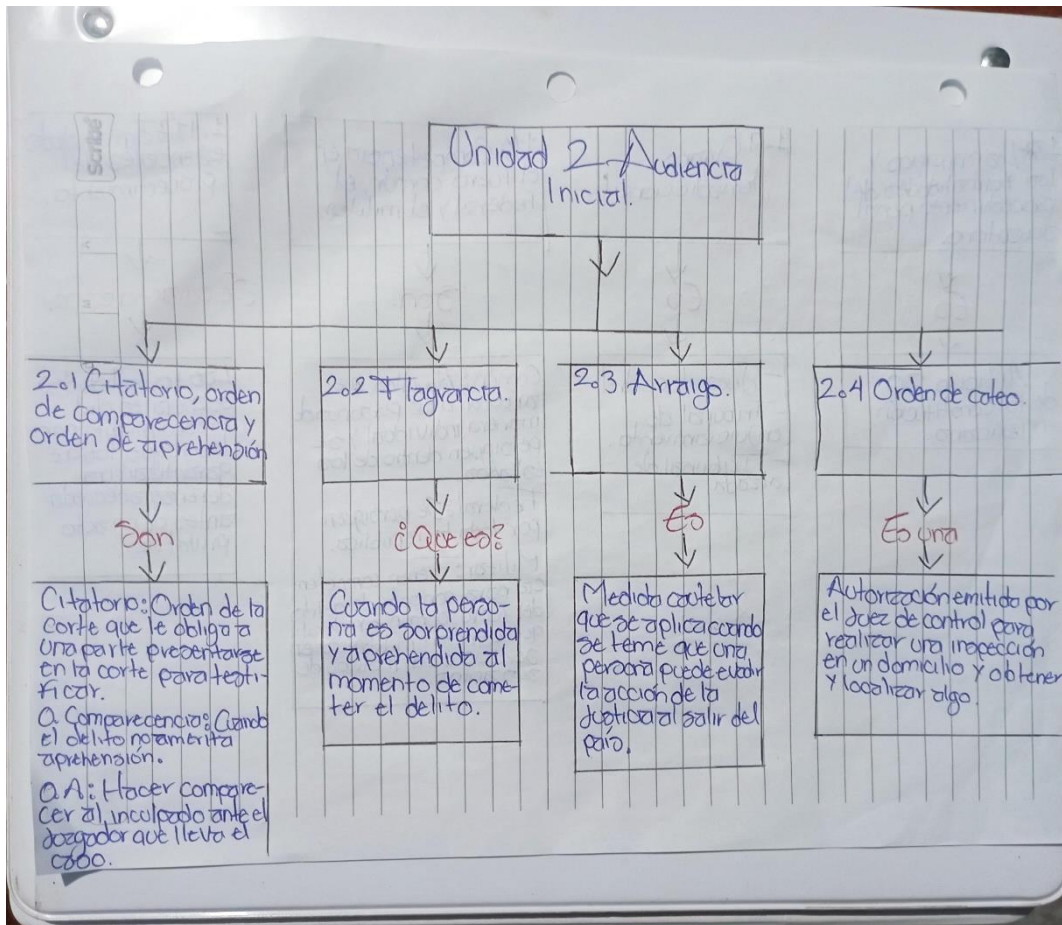 Scribe
Unidad 2 Audiencia
Inicial.
2.1 Citatorio, orden
de comparecencia y
orden de aprehensión
Son
Citatorio: Orden de la
corte que le obliga a
una parte presentarse
en la corte para testi-
ficar.
O. Comparecencia: Cuando
el delito no amerita
aprehensión.
O.A: Hacer compare-
cer al, inculpado ante el
juzgador que lleva el
caso.
2.2 Flagrancia.
¿Que es?
Cuando la perso-
na es sorprendida
y aprehendida al
momento de come-
ter el delito.
2.3 Arraigo.
Es
Medida cautelar
que se aplica cuando
se teme que una
persona puede evadir
la acción de la
justicia al salir del
país.
2.4 Orden de cateo.
Es una
Autorización emitido por
el juez de control para
realizar una inspección
en un domicilio y obtener
y localizar algo.